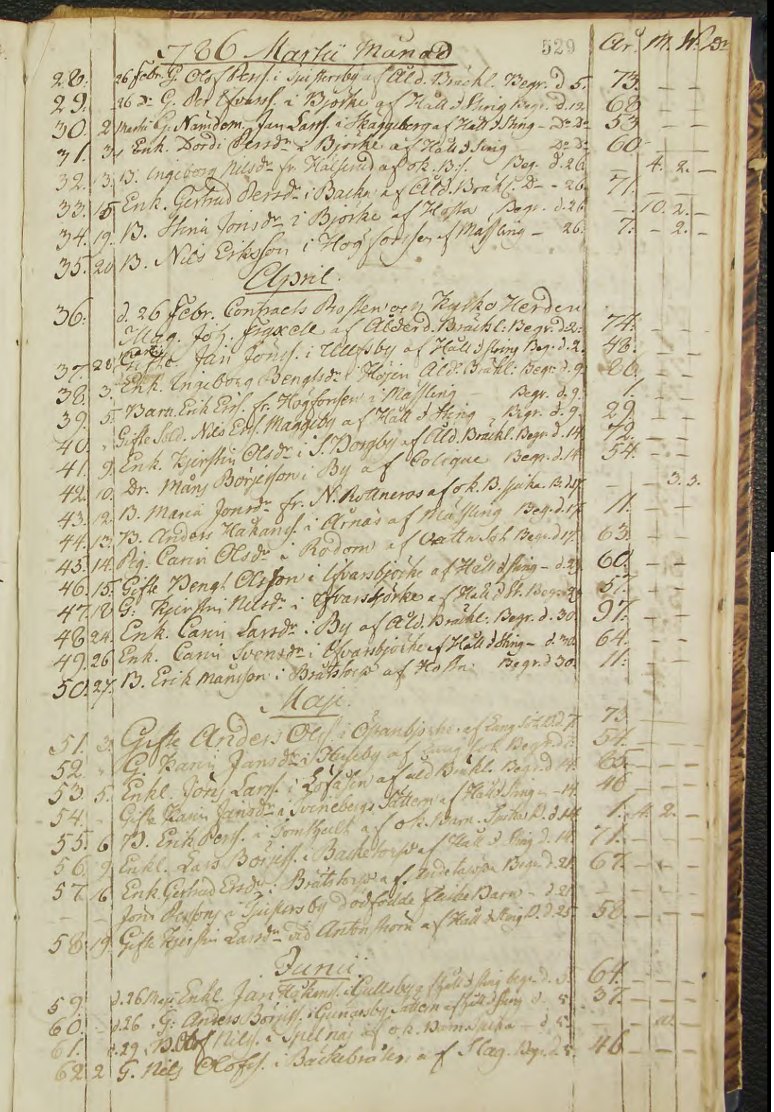 786 Martii Månad 529 År. M. W. D.
28. 26 Febr. G. Olof Perss. i af Åld. Bråckl. Begr. d. 5. 73. — —
29. 26 Dr G. Per i Björke af Håll o Sting Begr. d. 12. 68 — —
30. 2 Martii G. Nämdem. Jan Larss. i Skaggeberg af Håll o Sting — Do Do 53 — —
31. 3. Enk. Dordi Persdr i Björke af Håll o Sting Do Do 60 — —
32. 13. B. Ingeborg Nilsdr fr. af ok. B:s. Beg. d. 26. 4. 2. —
33. 15 Enk. Gertrud Persdr i Backa af Åld. Bråkl. D — 26. 71. — —
34. 19. B. Stina Jonsdr i Björke af Hosta Begr. d. 26 — 10. 2. —
35. 20 B. Nils Eriksson i Högforsen af Mässling — 26. 7. — 2. —
April.
36. d. 26 Febr. Contracts Prosten och Kyrko Herden
Mag. Joh. Fryxell af Ålderd. Bråckl. Begr. d. 2. 74. — —
37. 28 Martii Gifte Jan Jonss. i Ullfsby af Håll o Sting Beg. d. 2. 48. — —
38. 3. Enk. Ingeborg Bengtsdr i Höjen Åld. Bråkl. Begr. d. 9. 86 — —
39. 5. Barn Erik Erss. fr. Högforsen i Mässling — Begr. d. 9. 1. — —
40. Gifte Sold. Nils Erss. Maggeby af Håll o Sting, Begr. d. 9. 29. — —
41. 9. Enk. Kjerstin Olsdr i S. Borgby af Åld. Bråckl. Begr. d. 14 72. — —
42. 10. Dr. Måns Börjesson i By af Colique Begr. d. 14. 54. — —
43. 12. B. Maria Jonsdr fr. N. Rottneros af ok. B. sjuka B. d. 17 — — 3. 3.
44. 13. B. Anders Håkanss. i Årnäs af Mässling Beg. d. 17. 11. — —
45. 14. Pig. Carin Olsdr i Rådom af Vattusot Begr. d. 17. 63. — —
46. 15. Gifte Bengt Olsson i Ofvarsbjörke af Håll o Sting — d. 23 60. — —
47. 18 G. Kjerstin Nilsdr i Ofvarsbjörke af Håll o St. Begr. 57. — —
48 24. Enk. Carin Larsdr i By af Åld. Bråckl. Begr. d. 30. 97. — —
49. 26 Enk. Carin Svensdr i Ofvarsbjörke af Håll o Sting — d. 30. 64. — —
50. 27. B. Erik Månsson i Bråtstorp af Hosta Begr. d. 30. 11. — —
Maji.
51. 3. Gifte Anders Olss. i Östanbjörke af Lung Sot d. 7. 73. — —
52. G. Karin Jansdr i Huseby af Lung sot Begr. d. 54. — —
53. 5. Enkl. Jöns Larss. i Löfåsen af åld Bråkl. Begr. d. 14. 65. — —
54. Gifte Karin Jansdr i Svinebergs Sättern af Håll o Sting — 14. 46 — —
55. 6 B. Erik Perss. i Tomthult af ok Barn. Sjuka B. d. 14. 1. 4. 2. —
56. 9 Enkl. Lars Börjess. i Backetorp af Håll o Sting d. 14. 71. — —
57. 16. Enk. Gertrud Ersdr i Bråtstorp af Begr. d. 21. 67. — —
— — Jöns Perssons i Dödfödde Barn — d. 21 — — —
58. 19. Gifte Kjerstin Larsdr vid Antonstorn af Håll o Sting B. d. 25. 58. — —
Junii
59. d. 26 Maji Enkl. Jan Håkanss. i Gullsby af Håll o Sting begr. d. 5. 64. — —
60. d. 26. G. Anders Börjess. i Gunnarsby Sättern af Håll o Sting d. 5. 37. — —
61. d. 29. B. Olof Nilss. i Spelnäs af ok Barn Sjuka — d. 5.
62. 2 G. Nils Olofss. i Bäckebråten af Slag. Begr. d. 5. 46 — —